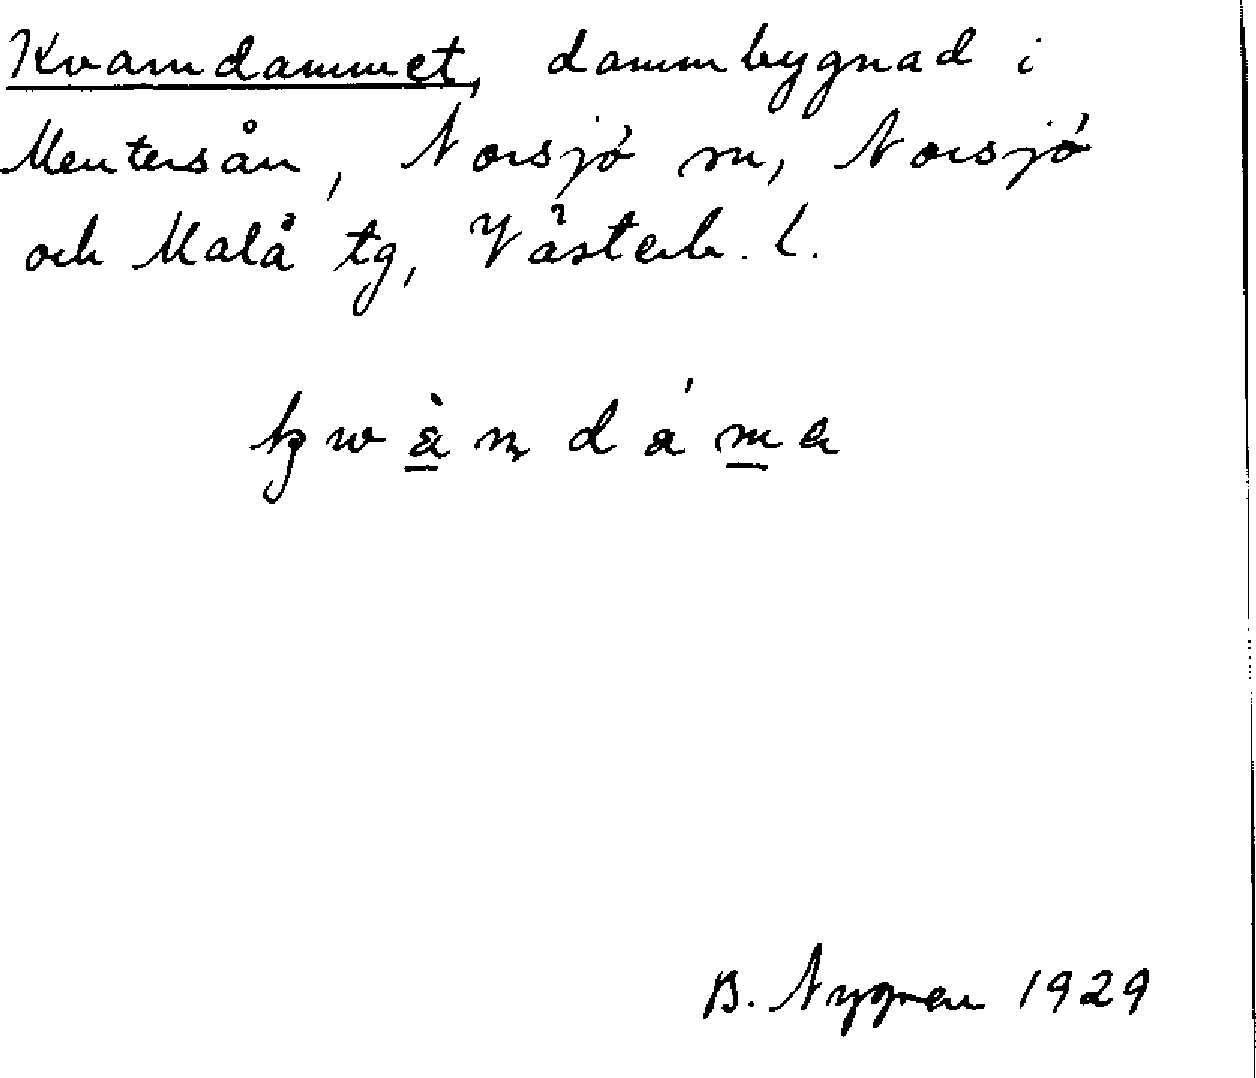 Kvarndammet, dammbygnad i
Mentersån, Norsjö sn, Norsjö
och Malå tg, Västerb. l.
B. Nygren 1929